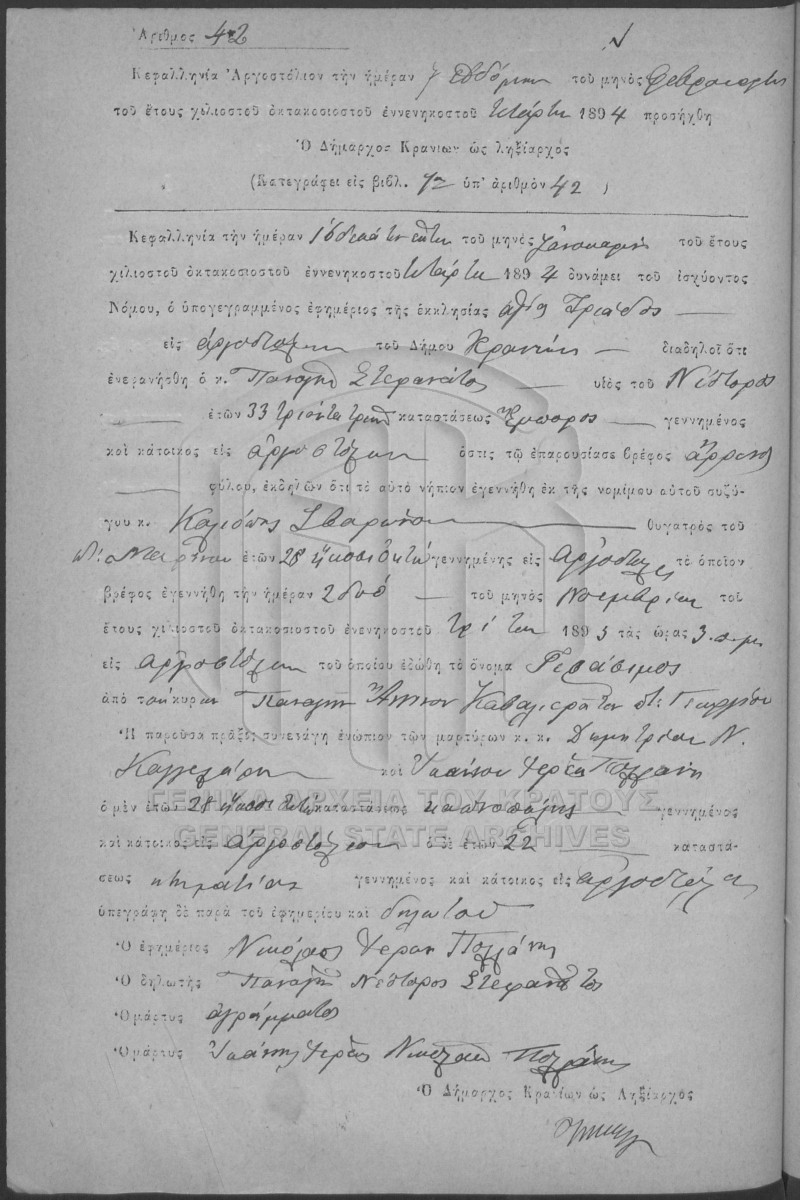 Ἀριθμος 42
Κεφαλληνία Ἀργοστόλιον τὴν ἡμέραν 7 ἑβδόμην τοῦ μηνὸς Φεβρουαρίου
τοῦ ἔτους χιλιοστοῦ ὀκτακοσιοστοῦ ἐννενηκοστοῦ τετάρτου 1894 προσήχθη
Ὁ Δήμαρχος Κρανίων ὡς ληξίαρχος
(Κατεγράφει εἰς βιβλ. 7ον ὑπ' ἀριθμὸν 42)
Κεφαλληνία τὴν ἡμέραν τοῦ μηνὸς Ἰανουαρίου τοῦ ἔτους
χιλιοστοῦ ὀκτακοσιοστοῦ ἐννενηκοστοῦ τετάρτου 1894 δυνάμει τοῦ ἰσχύοντος
Νόμου, ὁ ὑπογεγραμμένος ἐφημέριος τῆς ἐκκλησίας ἁγίας Τριάδος
εἰς Ἀργοστόλιον τοῦ Δήμου Κρανίων διαδηλοῖ ὅτι
ἐνεφανήσθη ὁ κ. Παναγῆς Στεφανάτος υἱὸς τοῦ Νέστορος
ἐτῶν 33 τριάντα τριῶν καταστάσεως ἔμπορος γεννημένος
καὶ κάτοικος εἰς Ἀργοστόλιον ὅστις τῷ ἐπαρουσίασε βρέφος ἄρρενος
φύλου, ἐκδηλῶν ὅτι τὸ αὐτὸ νήπιον ἐγεννήθη ἐκ τῆς νομίμου αὐτοῦ συζύ-
γου κ. Καλιόπης θυγατρὸς τοῦ
ἐτῶν 28 ἤκοσι ὀκτώ γεννημένης εἰς Ἀργοστόλι τὸ ὁποῖον
βρέφος ἐγεννήθη τὴν ἡμέραν 2 δυό τοῦ μηνὸς Νοεμβρίου τοῦ
ἔτους χιλιοστοῦ ὀκτακοσιοστοῦ ἐνενηκοστοῦ τρίτου 1893 τὰς ὥρας 3. π.μ.
εἰς Ἀργοστόλιον τοῦ ὁποίου ἐδώθη τὸ ὄνομα Γεράσιμος
ἀπὸ τὸν κύριον Παναγῆν Καβαλιεράτον Γεωργίου
Ἡ παροῦσα πρᾶξις συνετάγη ἐνώπιον τῶν μαρτύρων κ. κ. Δημητρίου Ν.
καὶ
ὁ μὲν ἐτῶν 28 ἤκοσι ὀκτώ καταστάσεως καπνοπώλης γεννημένος
καὶ κάτοικος εἰς Ἀργοστόλιον ὁ δὲ ἐτῶν 22 καταστά-
σεως κτηματίας γεννημένος καὶ κάτοικος εἰς Ἀργοστόλιον
ὑπεγράφη δὲ παρὰ τοῦ ἐφημερίου καὶ δηλωτοῦ
Ὁ ἐφημέριος Νικόλαος
Ὁ δηλωτὴς Παναγῆς Νέστορος Στεφανάτος
Ὁ μάρτυς ἀγράμματος
Ὁ μάρτυς
Ὁ Δήμαρχος Κρανίων ὡς Ληξίαρχος
ΓΕΝΙΚΑ ΑΡΧΕΙΑ ΤΟΥ ΚΡΑΤΟΥΣ
GENERAL STATE ARCHIVES